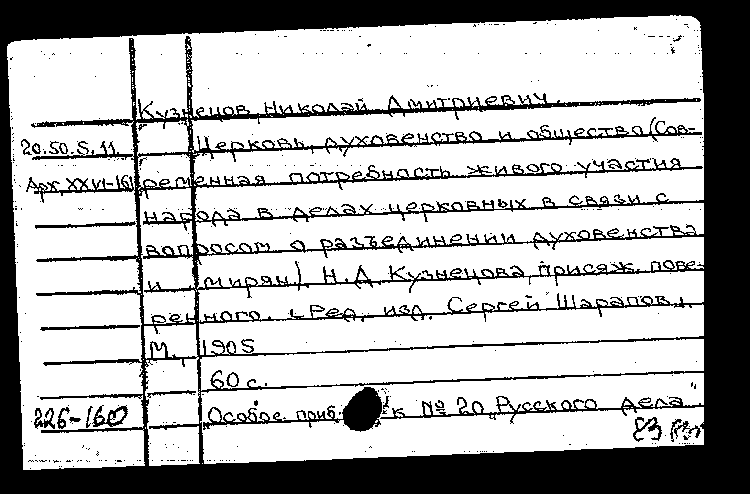 Кузнецов, Николай Дмитриевич.
20.50.5.11 Церковь, духовенство и общество (Сов-
Арх. XXVI-161 ременная потребность живого участия
народа в делах церковных в связи с
вопросом о разъединении духовенства
и мирян). Н.Д. Кузнецова, присяж. пове-
ренного. Ред. изд. Сергей Шарапов.
М., 1905
60 с.
226-160 Особое приб. к № 20 „Русского дела"